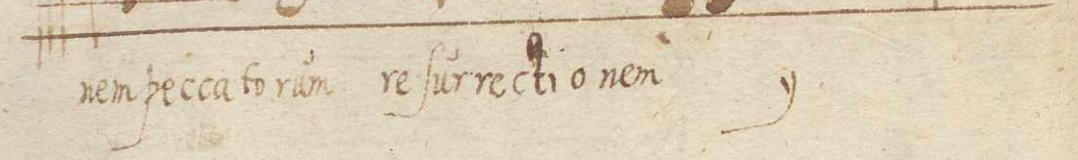 nem pecca to rum re sur recti o nem ij